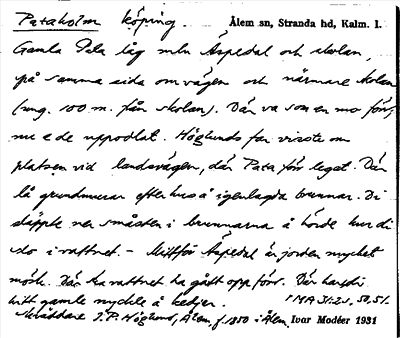 Pataholm köping. Ålem sn, Stranda hd, Kalm. l.
Gamla Pata låg mln Äspedal och skolan,
på samma sida om vägen och närmare skolan
(ung. 100 m. från skolan). Där va som en mo förr,
nu e de uppodlat. Höglunds far visste om
platsen vid landsvägen, där Pata förr legat. Där
lå grundmurar efter hus å igenlagda brunnar. Di
släppte ner småsten i brunnarna å hörde hur di
slo i vattnet. – Mittför Äspedal är jorden mycket
mörk. Där ska vattnet ha gått opp förr. Där har di
hitt gamle nyckle å kedjer. MA 31:21, 50, 51.
Skräddare J. P. Höglund, Ålem, f. 1850 i Ålem. Ivar Modéer 1931